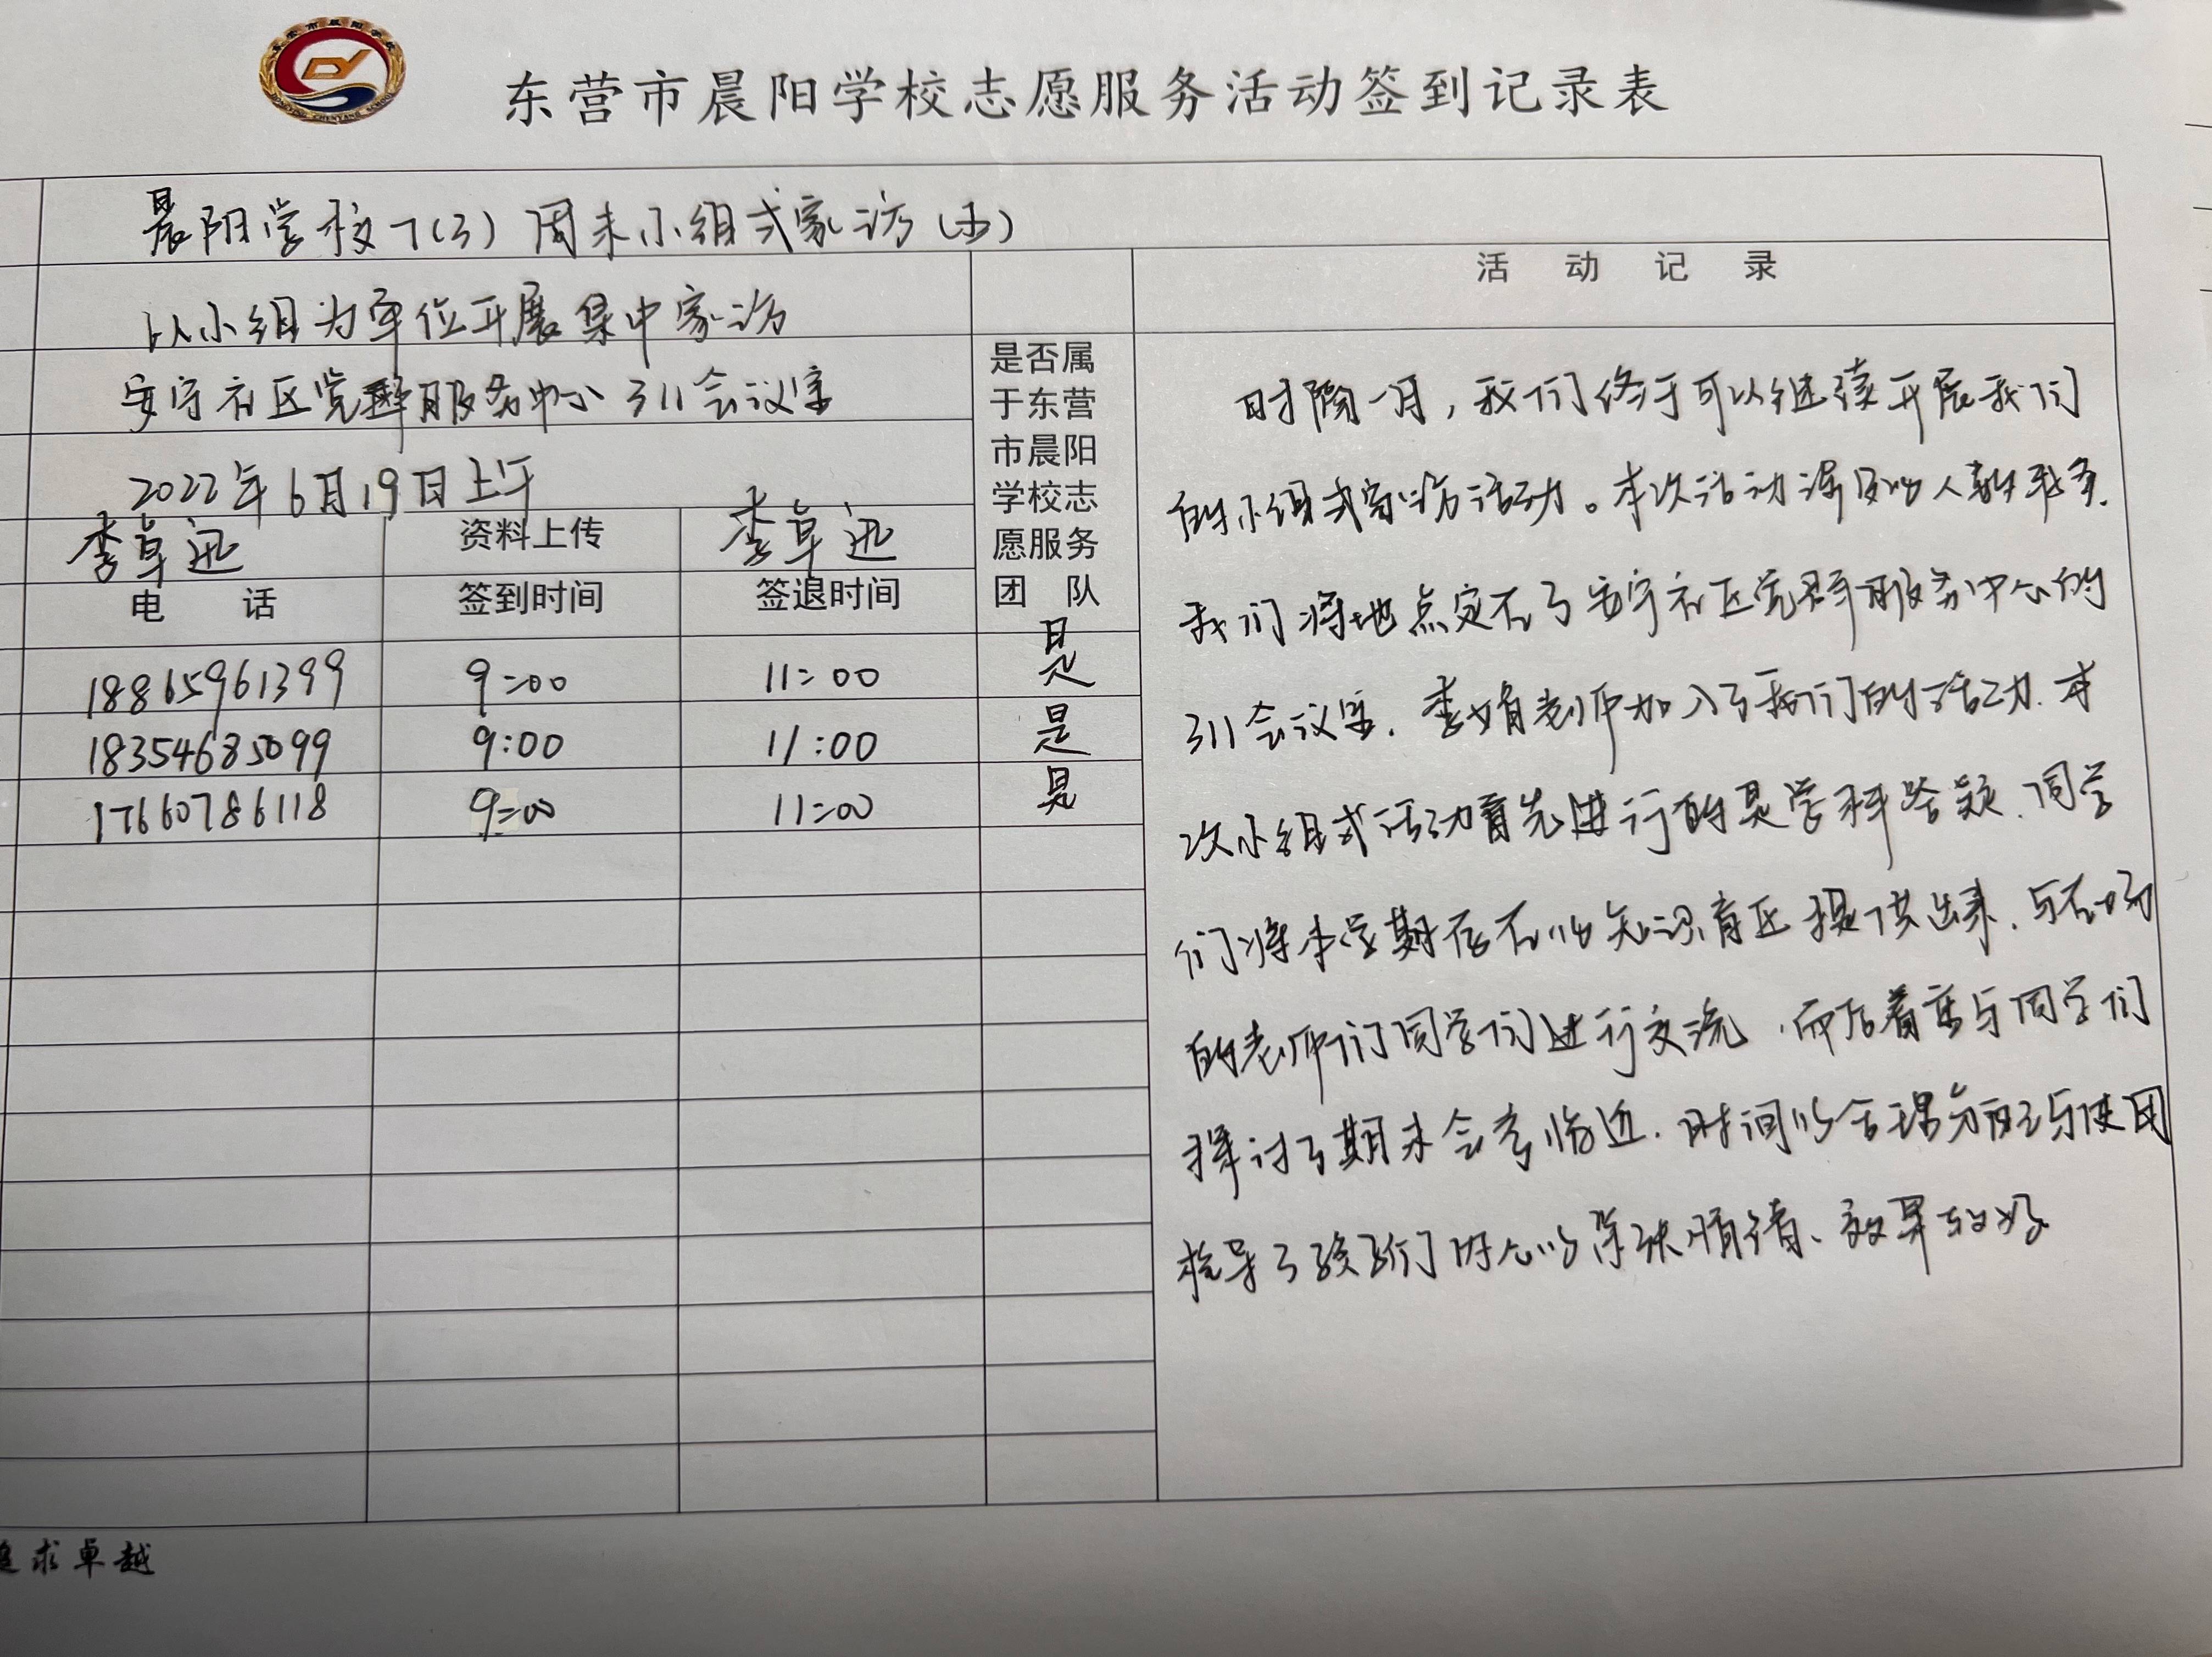 东营市晨阳学校志愿服务活动签到记录表
晨阳学校7(3)周末小组式家访
以小组为单位开展集中家访
安宁社区党群服务中心311会议室
2022年6月19日上午
李卓迅 资料上传 李卓迅
电话 签到时间 签退时间
是否属
于东营
市晨阳
学校志
愿服务
团队
18865961399 9:00 11:00 是
18354685099 9:00 11:00 是
17660786118 9:00 11:00 是
活动记录
时隔一月,我们终于可以继续开展我们
的小组式家访活动。本次活动涉及的人数较多.
我们将地点定在了安宁社区党群服务中心的
311会议室.李娟老师加入了我们的活动.本
次小组式活动首先进行的是学科答疑.同学
们将本学期存在的知识盲区提供出来.与在场
的老师们同学们进行交流.而后着重与同学们
探讨了期末会考临近.时间的合理分配与使用
指导了孩子们内心的情绪、效果较好
追求卓越